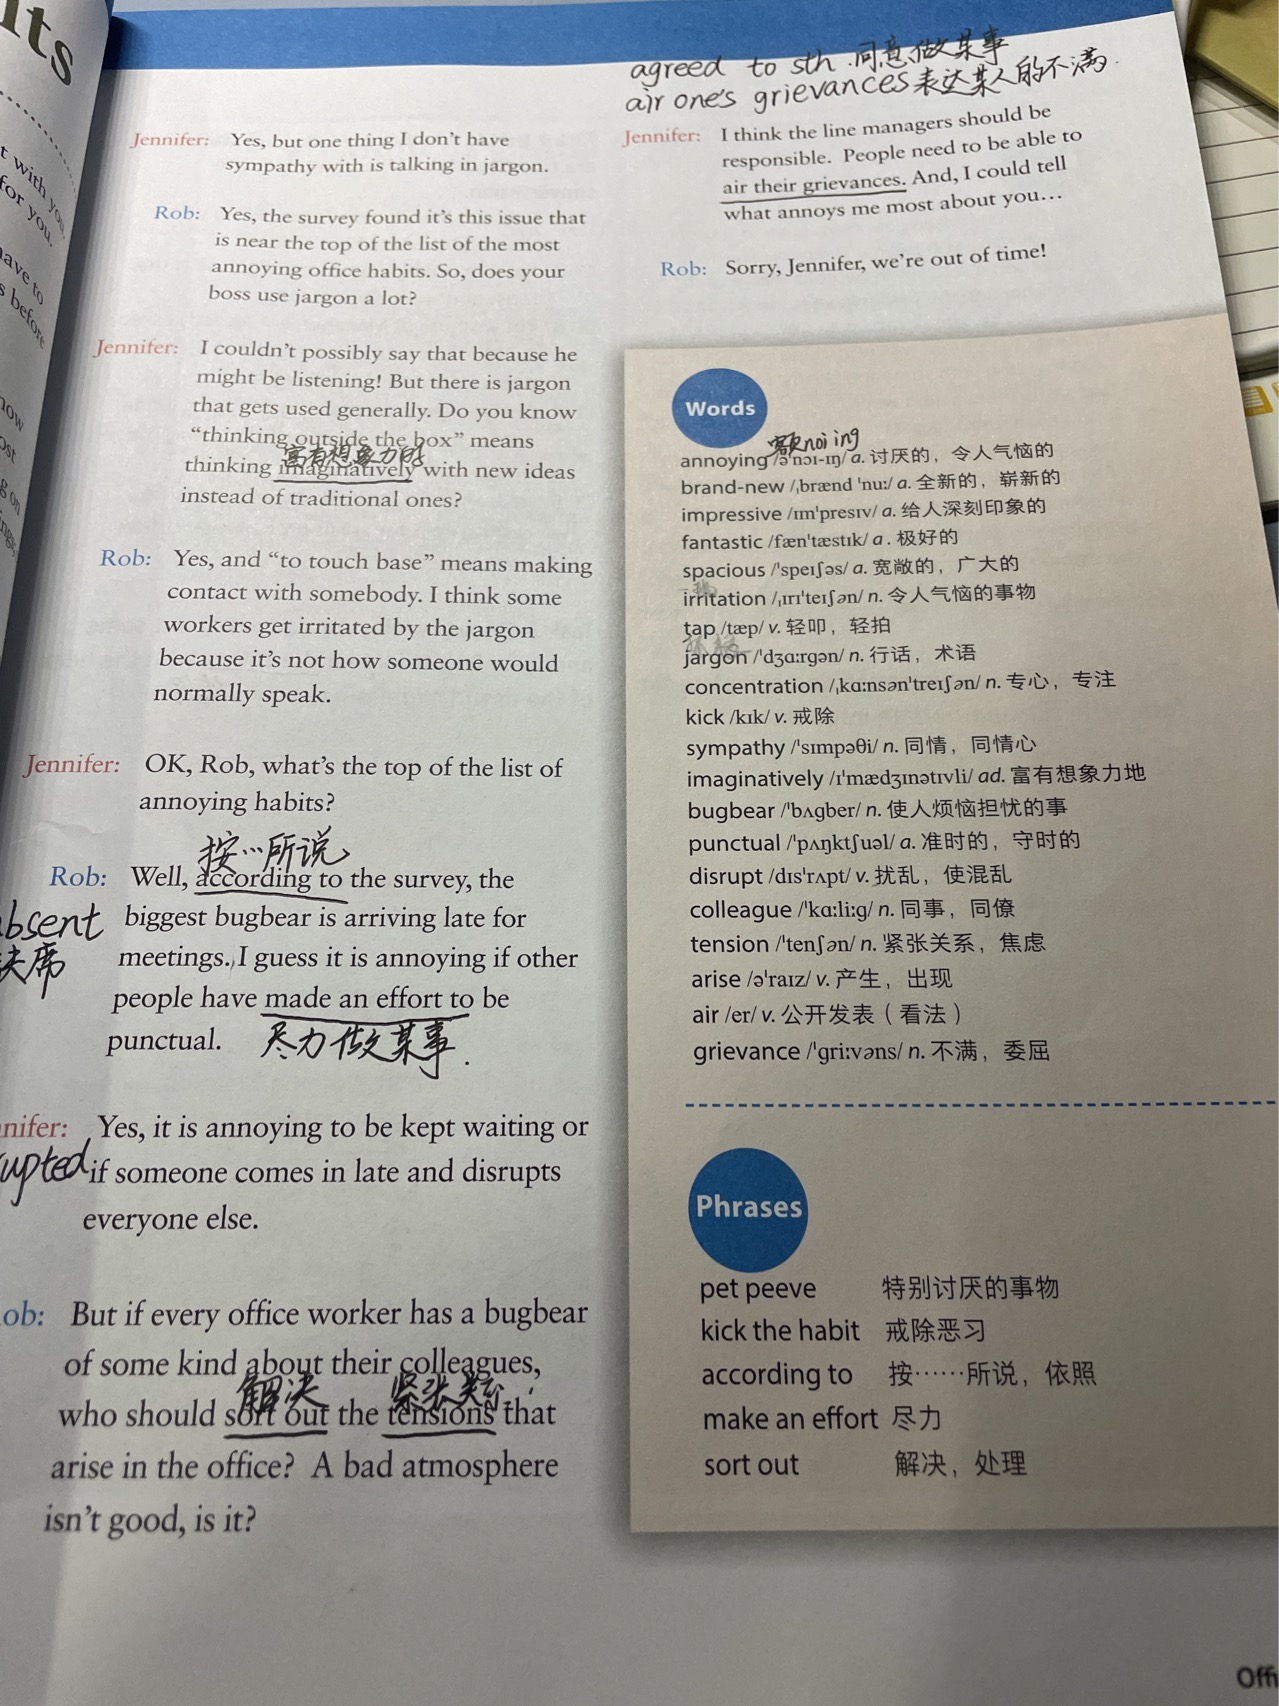 its
t with you,
for you.
have to
s before
now
ost
g on
ings,
Jennifer: Yes, but one thing I don't have
sympathy with is talking in jargon.
Rob: Yes, the survey found it's this issue that
is near the top of the list of the most
annoying office habits. So, does your
boss use jargon a lot?
Jennifer: I couldn't possibly say that because he
might be listening! But there is jargon
that gets used generally. Do you know
"thinking outside the box" means
富有想象力的
thinking imaginatively with new ideas
instead of traditional ones?
Rob: Yes, and "to touch base" means making
contact with somebody. I think some
workers get irritated by the jargon
because it's not how someone would
normally speak.
Jennifer: OK, Rob, what's the top of the list of
annoying habits?
按…所说
Rob: Well, according to the survey, the
absent
biggest bugbear is arriving late for
缺席
meetings. I guess it is annoying if other
people have made an effort to be
punctual.
尽力做某事.
nifer: Yes, it is annoying to be kept waiting or
upted
if someone comes in late and disrupts
everyone else.
ob: But if every office worker has a bugbear
of some kind about their colleagues,
解决 紧张关系
who should sort out the tensions that
arise in the office? A bad atmosphere
isn't good, is it?
agreed to sth 同意做某事
air one's grievances表达某人的不满.
Jennifer: I think the line managers should be
responsible. People need to be able to
air their grievances. And, I could tell
what annoys me most about you…
Rob: Sorry, Jennifer, we're out of time!
Words
noiing
annoying /əˈnɔɪ-ɪŋ/ a. 讨厌的，令人气恼的
brand-new /ˌbrænd ˈnuː/ a. 全新的，崭新的
impressive /ɪmˈpresɪv/ a. 给人深刻印象的
fantastic /fænˈtæstɪk/ a. 极好的
spacious /ˈspeɪʃəs/ a. 宽敞的，广大的
irritation /ˌɪrɪˈteɪʃən/ n. 令人气恼的事物
tap /tæp/ v. 轻叩，轻拍
jargon /ˈdʒɑːrgən/ n. 行话，术语
concentration /ˌkɑːnsənˈtreɪʃən/ n. 专心，专注
kick /kɪk/ v. 戒除
sympathy /ˈsɪmpəθi/ n. 同情，同情心
imaginatively /ɪˈmædʒɪnətɪvli/ ad. 富有想象力地
bugbear /ˈbʌgber/ n. 使人烦恼担忧的事
punctual /ˈpʌŋktʃuəl/ a. 准时的，守时的
disrupt /dɪsˈrʌpt/ v. 扰乱，使混乱
colleague /ˈkɑːliːg/ n. 同事，同僚
tension /ˈtenʃən/ n. 紧张关系，焦虑
arise /əˈraɪz/ v. 产生，出现
air /er/ v. 公开发表（看法）
grievance /ˈgriːvəns/ n. 不满，委屈
Phrases
pet peeve 特别讨厌的事物
kick the habit 戒除恶习
according to 按……所说，依照
make an effort 尽力
sort out 解决，处理
Offi